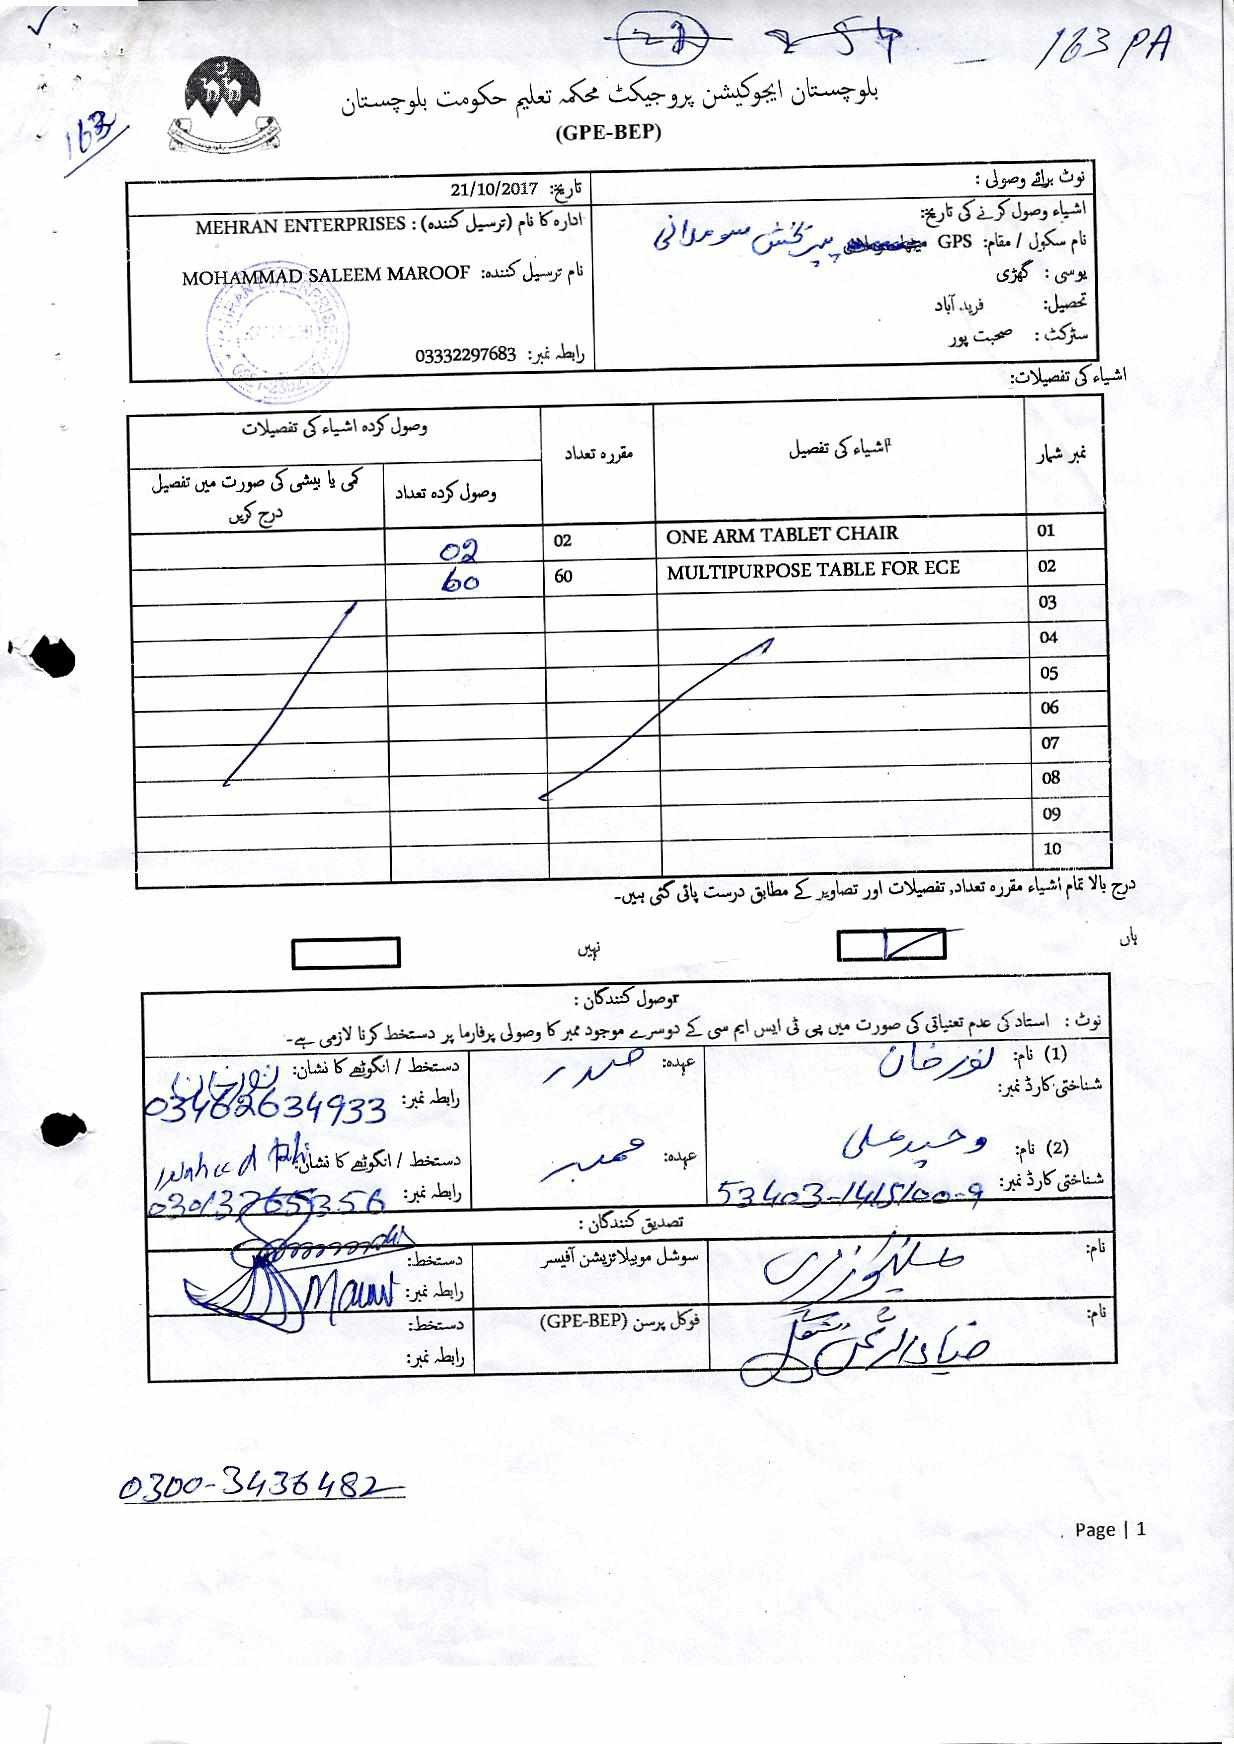 163 PA
163
بلوچستان ایجوکیشن پروجیکٹ محکمہ تعلیم حکومت بلوچستان
(GPE-BEP)
نوٹ برائے وصولی :
اشیاء وصول کرنے کی تاریخ:
نام سکول / مقام: GPS
یوسی : گھڑی
تحصیل: فرید آباد
سٹرکٹ : صحبت پور
تاریخ: 21/10/2017
ادارہ کا نام (ترسیل کنندہ) : MEHRAN ENTERPRISES
نام ترسیل کنندہ: MOHAMMAD SALEEM MAROOF
رابطہ نمبر: 03332297683
اشیاء کی تفصیلات:
نمبر شمار اشیاء کی تفصیل مقررہ تعداد وصول کردہ اشیاء کی تفصیلات
وصول کردہ تعداد کمی یا بیشی کی صورت میں تفصیل درج کریں
01 ONE ARM TABLET CHAIR 02 02
02 MULTIPURPOSE TABLE FOR ECE 60 60
03
04
05
06
07
08
09
10
درج بالا تمام اشیاء مقررہ تعداد, تفصیلات اور تصاویر کے مطابق درست پائی گئی ہیں۔
ہاں نہیں
وصول کنندگان :
نوٹ : استاد کی عدم تعنیاتی کی صورت میں پی ٹی ایس ایم سی کے دوسرے موجود ممبر کا وصولی پرفارما پر دستخط کرنا لازمی ہے۔
(1) نام: نور خان عہدہ: صدر دستخط / انگوٹھے کا نشان: نور خان
شناختی کارڈ نمبر: رابطہ نمبر: 03462634933
(2) نام: وحید علی عہدہ: ممبر دستخط / انگوٹھے کا نشان: Waheed
شناختی کارڈ نمبر: 53403-1415100-9 رابطہ نمبر:
تصدیق کنندگان :
نام: سوشل موبیلائزیشن آفیسر دستخط:
رابطہ نمبر:
نام: فوکل پرسن (GPE-BEP) دستخط:
رابطہ نمبر:
0300-3436482
Page | 1